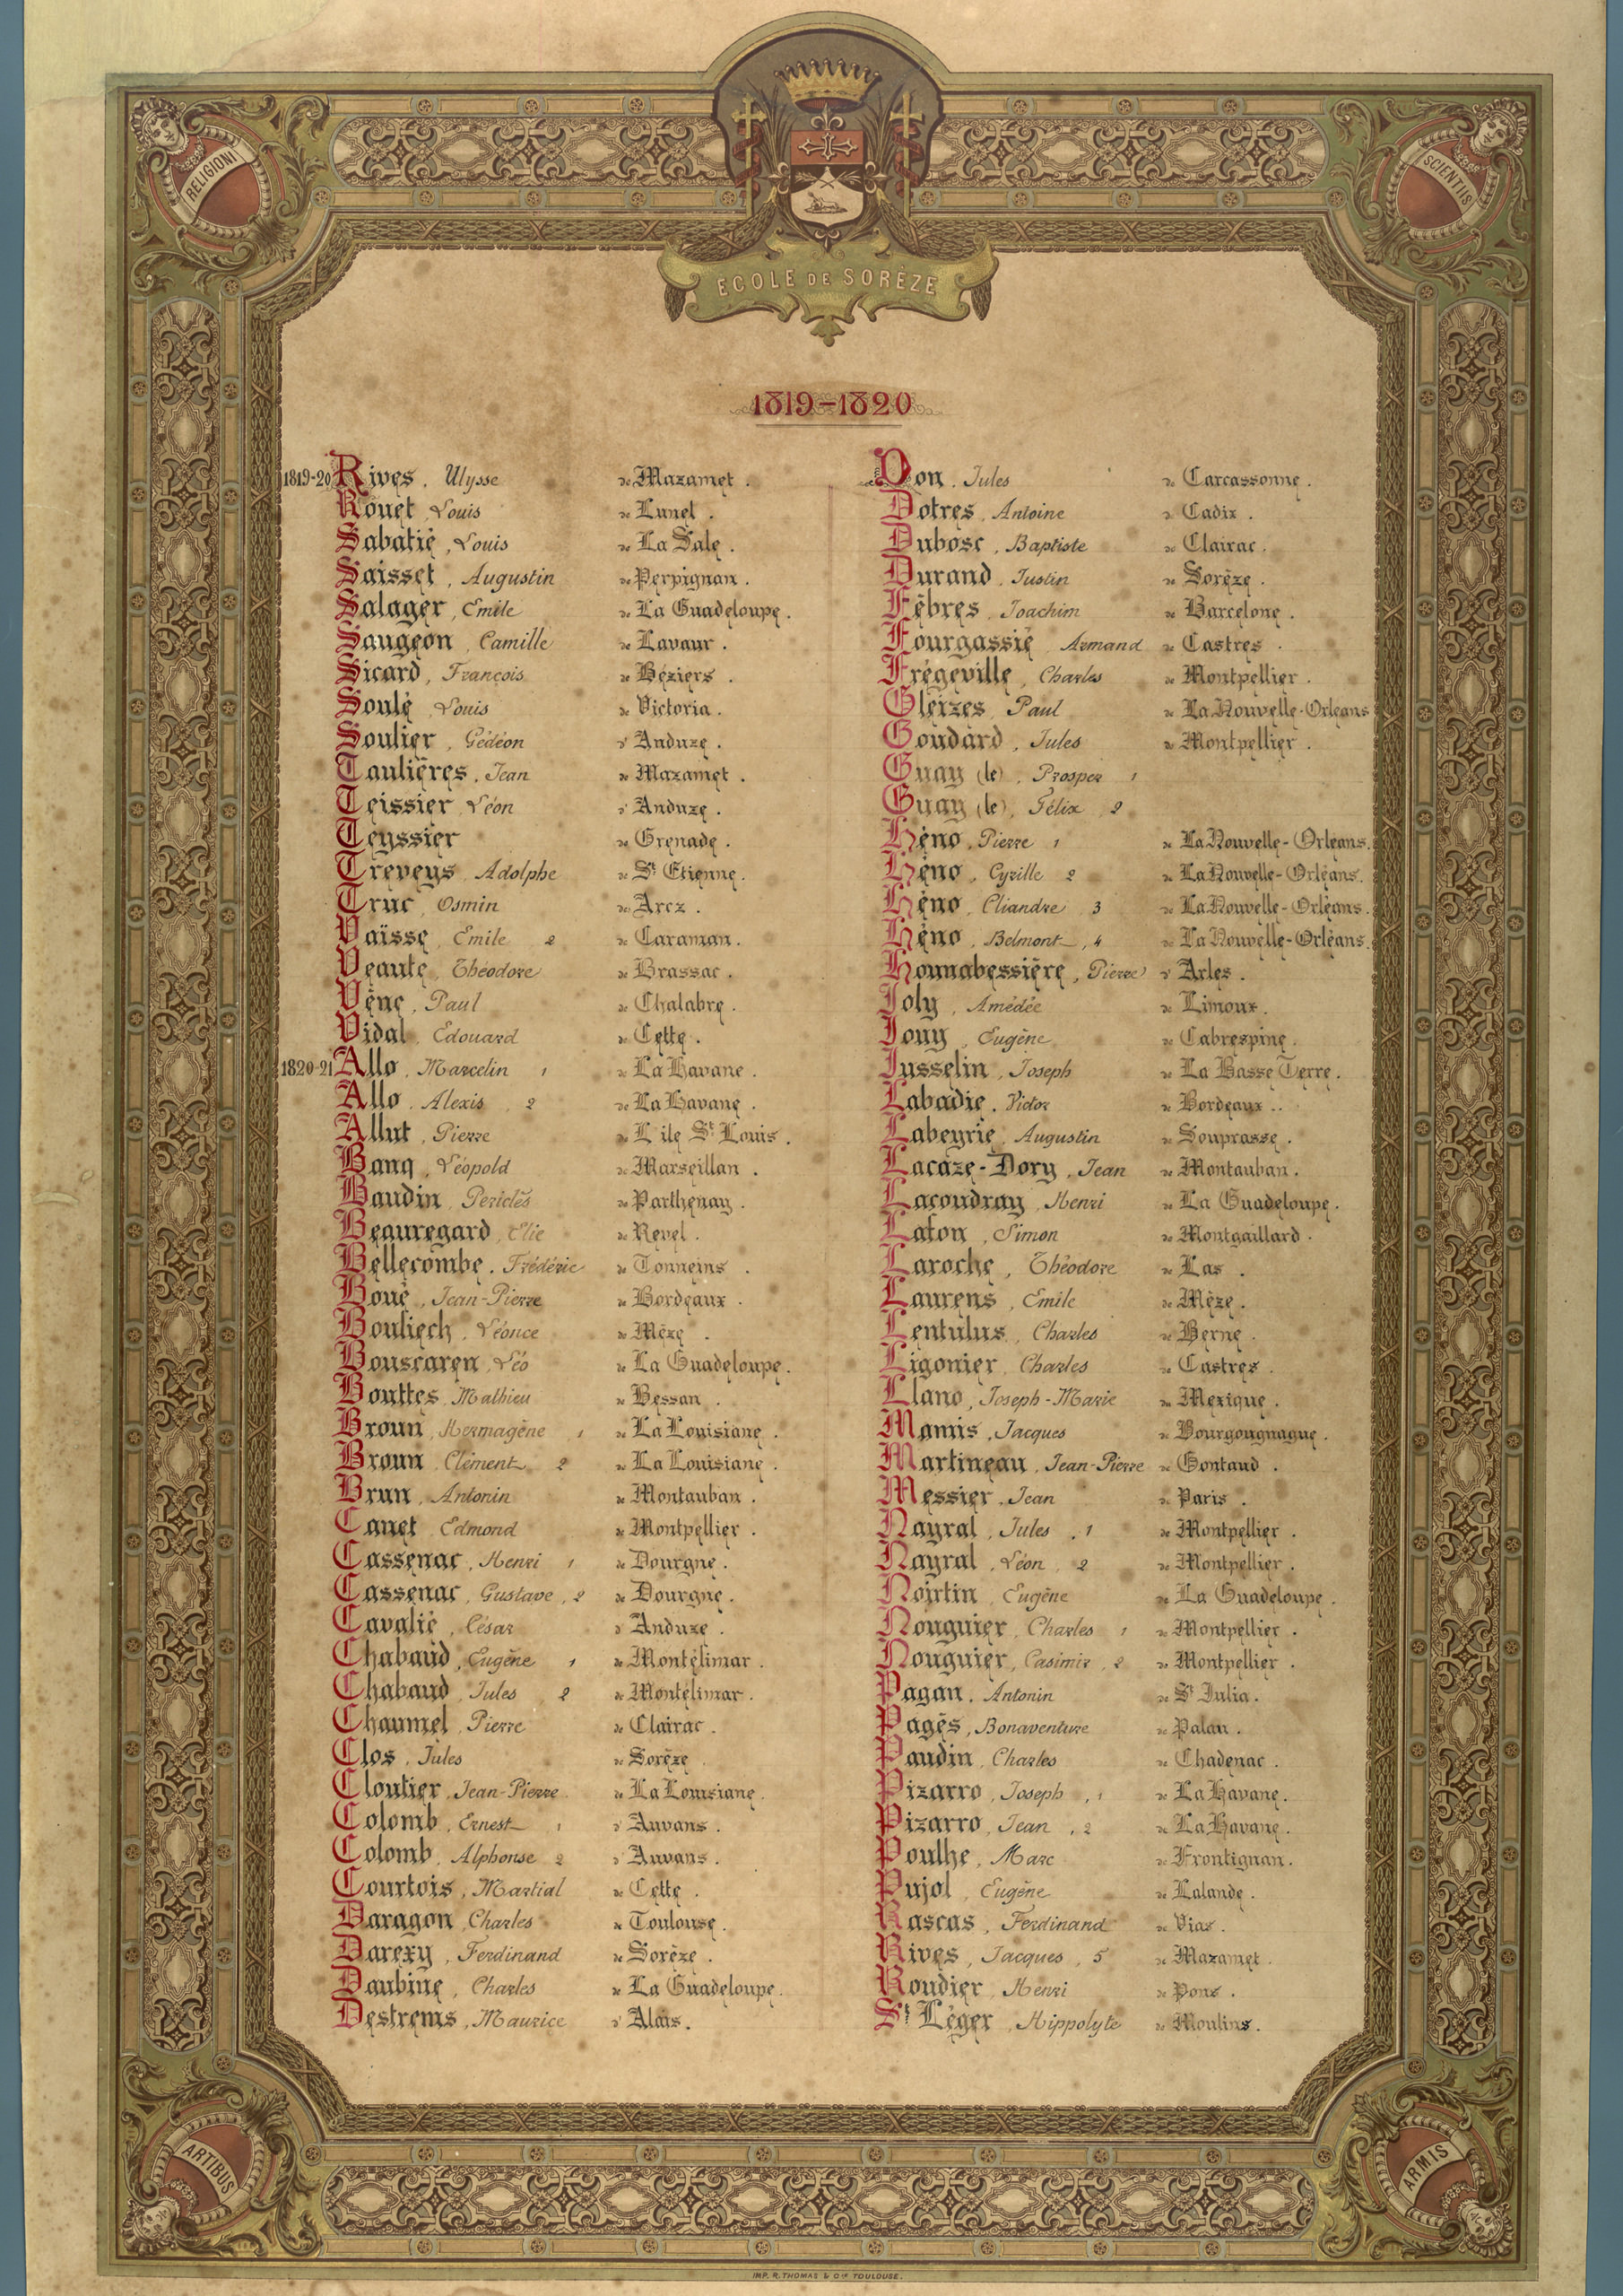 RELIGIONI
SCIENTIIS
ÉCOLE DE SORÈZE
1819-1820
1819-20 Rives, Ulysse de Mazamet.
Rouet, Louis de Lunel.
Sabatié, Louis de La Sale.
Saisset, Augustin de Perpignan.
Salager, Emile de La Guadeloupe.
Saugeon, Camille de Lavaur.
Sicard, François de Béziers.
Soulé, Louis de Victoria.
Soulier, Gédéon d'Anduze.
Taulières, Jean de Mazamet.
Teissier, Léon d'Anduze.
Teyssier de Grenade.
Treveys, Adolphe de St Etienne.
Truc, Osmin des Arcz.
Vaïsse, Emile 2 de Caraman.
Veaute, Théodore de Brassac.
Vène, Paul de Chalabre.
Vidal, Edouard de Cette.
1820-21 Allo, Marcelin 1 de La Havane.
Allo, Alexis, 2 de La Havane.
Allut, Pierre de L'ile St Louis.
Banq, Léopold de Marseillan.
Baudin, Periclès de Parthenay.
Beauregard, Elie de Revel.
Bellecombe, Frédéric de Tonneins.
Boué, Jean-Pierre de Bordeaux.
Bouliech, Léonce de Mèze.
Bouscaren, Léo de La Guadeloupe.
Bouttes, Mathieu de Bessan.
Broun, Hermagène, 1 de La Louisiane.
Broun, Clément, 2 de La Louisiane.
Brun, Antonin de Montauban.
Canet, Edmond de Montpellier.
Cassenac, Henri 1 de Dourgne.
Cassenac, Gustave, 2 de Dourgne.
Cavalié, César d'Anduze.
Chabaud, Eugène 1 de Montélimar.
Chabaud, Jules, 2 de Montélimar.
Chaumel, Pierre de Clairac.
Clos, Jules de Sorèze.
Cloutier, Jean-Pierre de La Louisiane.
Colomb, Ernest, 1 d'Auvans.
Colomb, Alphonse 2 d'Auvans.
Courtois, Martial de Cette.
Daragon, Charles de Toulouse.
Darexy, Ferdinand de Sorèze.
Daubine, Charles de La Guadeloupe.
Destrems, Maurice d'Alais.
Don, Jules de Carcassonne.
Dotres, Antoine de Cadix.
Dubosc, Baptiste de Clairac.
Durand, Justin de Sorèze.
Fèbres, Joachim de Barcelone.
Fourgassié, Armand de Castres.
Frégeville, Charles de Montpellier.
Gleizes, Paul de La Nouvelle-Orléans
Goudard, Jules de Montpellier.
Guay (le), Prosper 1
Guay (le), Félix, 2
Héno, Pierre 1 de La Nouvelle-Orléans.
Héno, Cyrille 2 de La Nouvelle-Orléans.
Héno, Cliandre, 3 de La Nouvelle-Orléans.
Héno, Belmont, 4 de La Nouvelle-Orléans.
Hounabessière, Pierre d'Arles.
Joly, Amédée de Limoux.
Jouy, Eugène de Cabrespine.
Jusselin, Joseph de La Basse Terre.
Labadie, Victor de Bordeaux.
Labeyrie, Augustin de Souprasse.
Lacaze-Dory, Jean de Montauban.
Lacoudray, Henri de La Guadeloupe.
Lafon, Simon de Montgaillard.
Laroche, Théodore de Las.
Laurens, Emile de Mèze.
Lentulus, Charles de Berne.
Ligonier, Charles de Castres.
Llano, Joseph-Marie du Mexique.
Mamis, Jacques de Bourgougnague.
Martineau, Jean-Pierre de Gontaud.
Messier, Jean de Paris.
Nayral, Jules, 1 de Montpellier.
Nayral, Léon, 2 de Montpellier.
Noirtin, Eugène de La Guadeloupe.
Nouguier, Charles 1 de Montpellier.
Nouguier, Casimir, 2 de Montpellier.
Pagan, Antonin de St Julia.
Pagès, Bonaventure de Palau.
Paudin, Charles de Chadenac.
Pizarro, Joseph, 1 de La Havane.
Pizarro, Jean, 2 de La Havane.
Poulhe, Marc de Frontignan.
Pujol, Eugène de Lalande.
Rascas, Ferdinand de Vias.
Rives, Jacques, 5 de Mazamet.
Roudier, Henri de Pons.
St Léger, Hippolyte de Moulins.
ARTIBUS
ARMIS
IMP. R. THOMAS & Cie TOULOUSE.